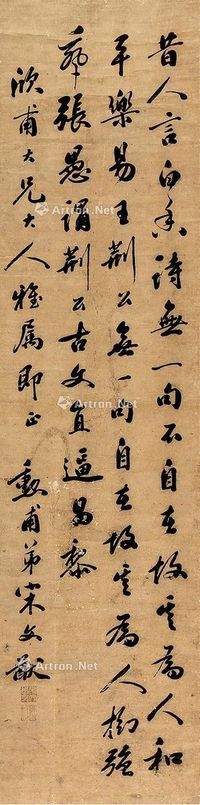 昔人言白香詩無一句不自在故其為人和
平樂易王荊公無一句自在故其為人拗強
乖張愚謂荊公古文直逼昌黎
欣甫大兄大人雅属即正 勳甫弟宋文
Artron.Net
Artron.Net
Artron.Net
Artron.Net